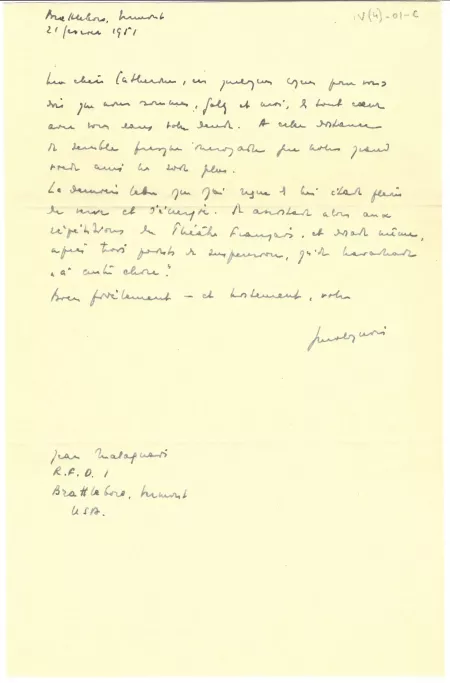 V(4)-01-C
Brattleboro, Vermont
21 février 1951
Ma chère Catherine, ces quelques lignes pour vous
dire que nous sommes, Galy et moi, de tout cœur
avec vous dans votre deuil. A cette distance
il semble presque incroyable que notre grand
ami ne soit plus.
La dernière lettre que j'ai reçue de lui était pleine
de verve et d'énergie. Il assistait alors aux
répétitions du Théâtre Français, et disait même,
après trois points de suspension, qu'il travaillait
"à autre chose".
Bien fidèlement — et tristement, votre
Malaquais
Jean Malaquais
R.F.D. 1
Brattleboro, Vermont
USA.